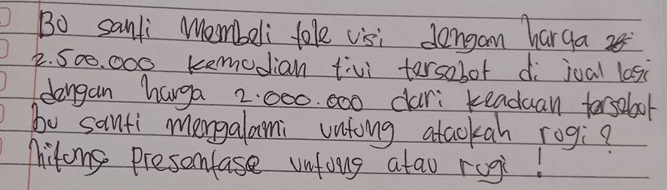 Bu santi membeli tele visi dengan harga
2.500.000 kemudian tivi tersebut di jual lagi
dengan harga 2.000.000 dari keadaan tersebut
bu santi mengalami untung ataukah rugi?
hitung presentase untung atau rugi!